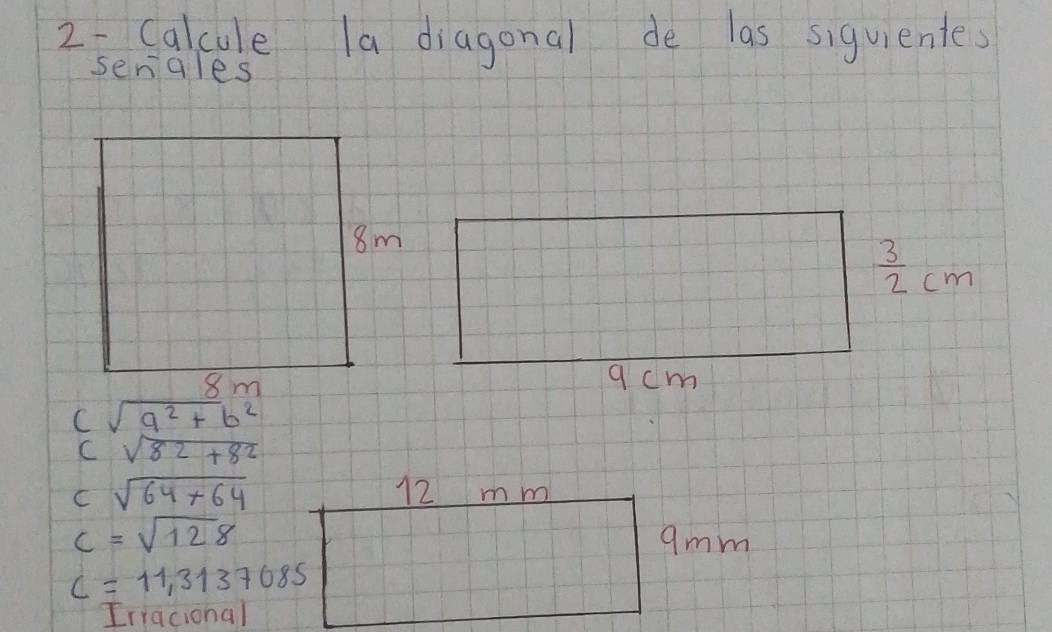 2- Calcule la diagonal de las siguientes
señales
8m
8m
3/2 cm
9 cm
C √a² + b²
C √8² + 8²
C √64 + 64
C = √128
C = 11,3137085
Irracional
12 mm
9mm